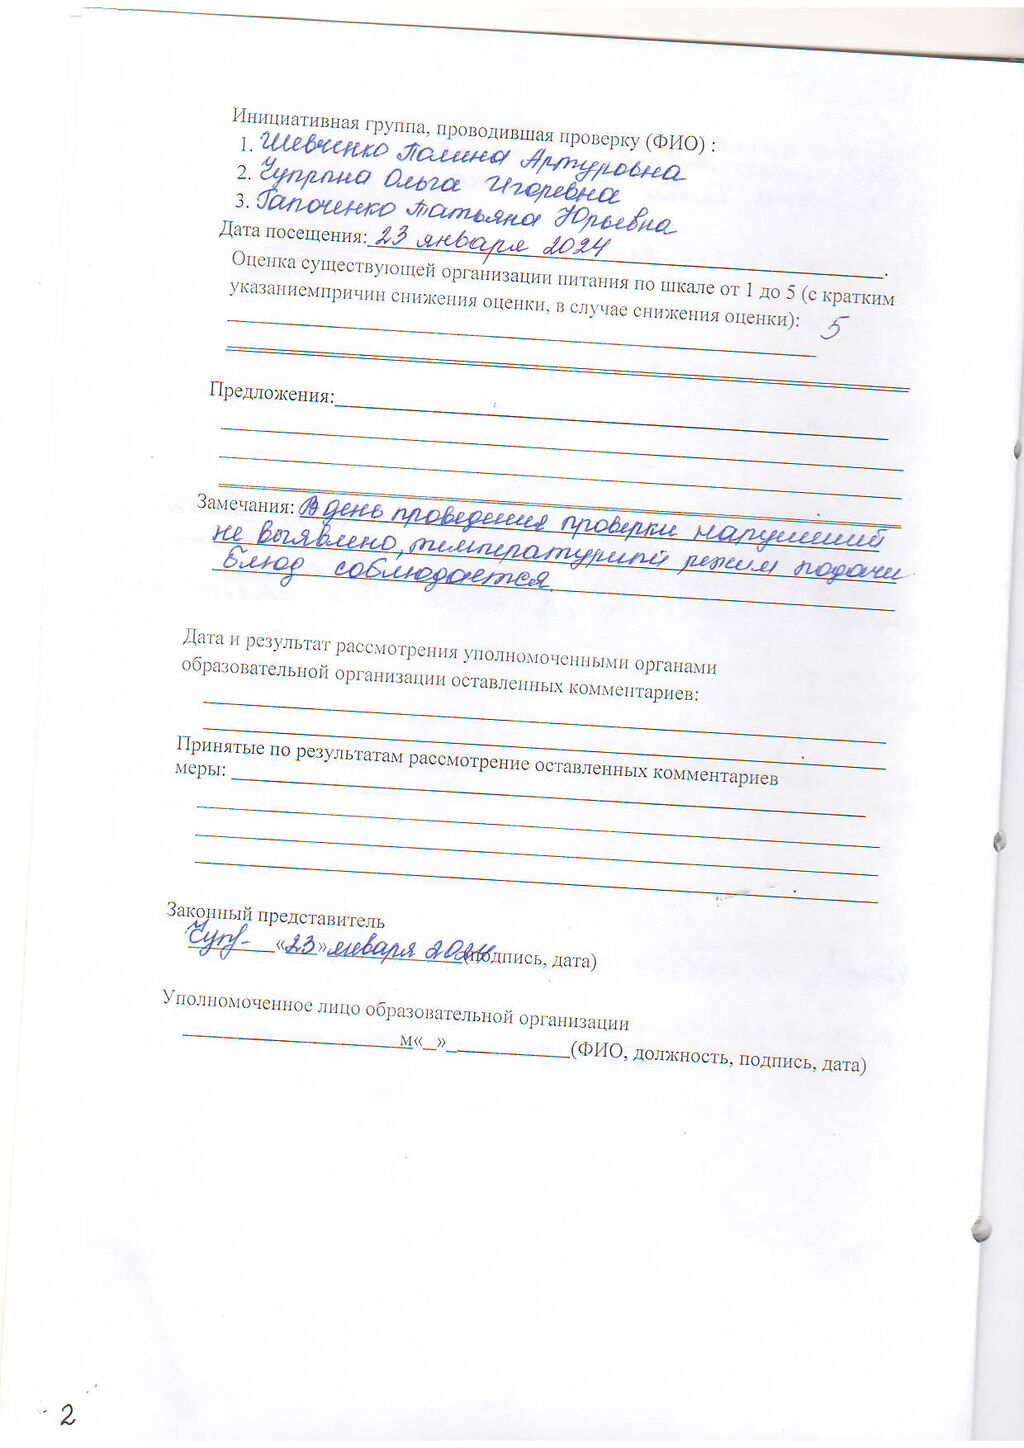 Инициативная группа, проводившая проверку (ФИО) :
1. Шевченко Полина Артуровна
2. Чуприна Ольга Игоревна
3. Гапоченко Татьяна Юрьевна
Дата посещения: 23 января 2024.
Оценка существующей организации питания по шкале от 1 до 5 (с кратким
указаниемпричин снижения оценки, в случае снижения оценки): 5
Предложения:
Замечания: В день проведения проверки нарушений
не выявлено, температурный режим подачи
блюд соблюдается.
Дата и результат рассмотрения уполномоченными органами
образовательной организации оставленных комментариев:
Принятые по результатам рассмотрение оставленных комментариев
меры:
Законный представитель
«23» января 2024 (подпись, дата)
Уполномоченное лицо образовательной организации
м«_»_ (ФИО, должность, подпись, дата)
2